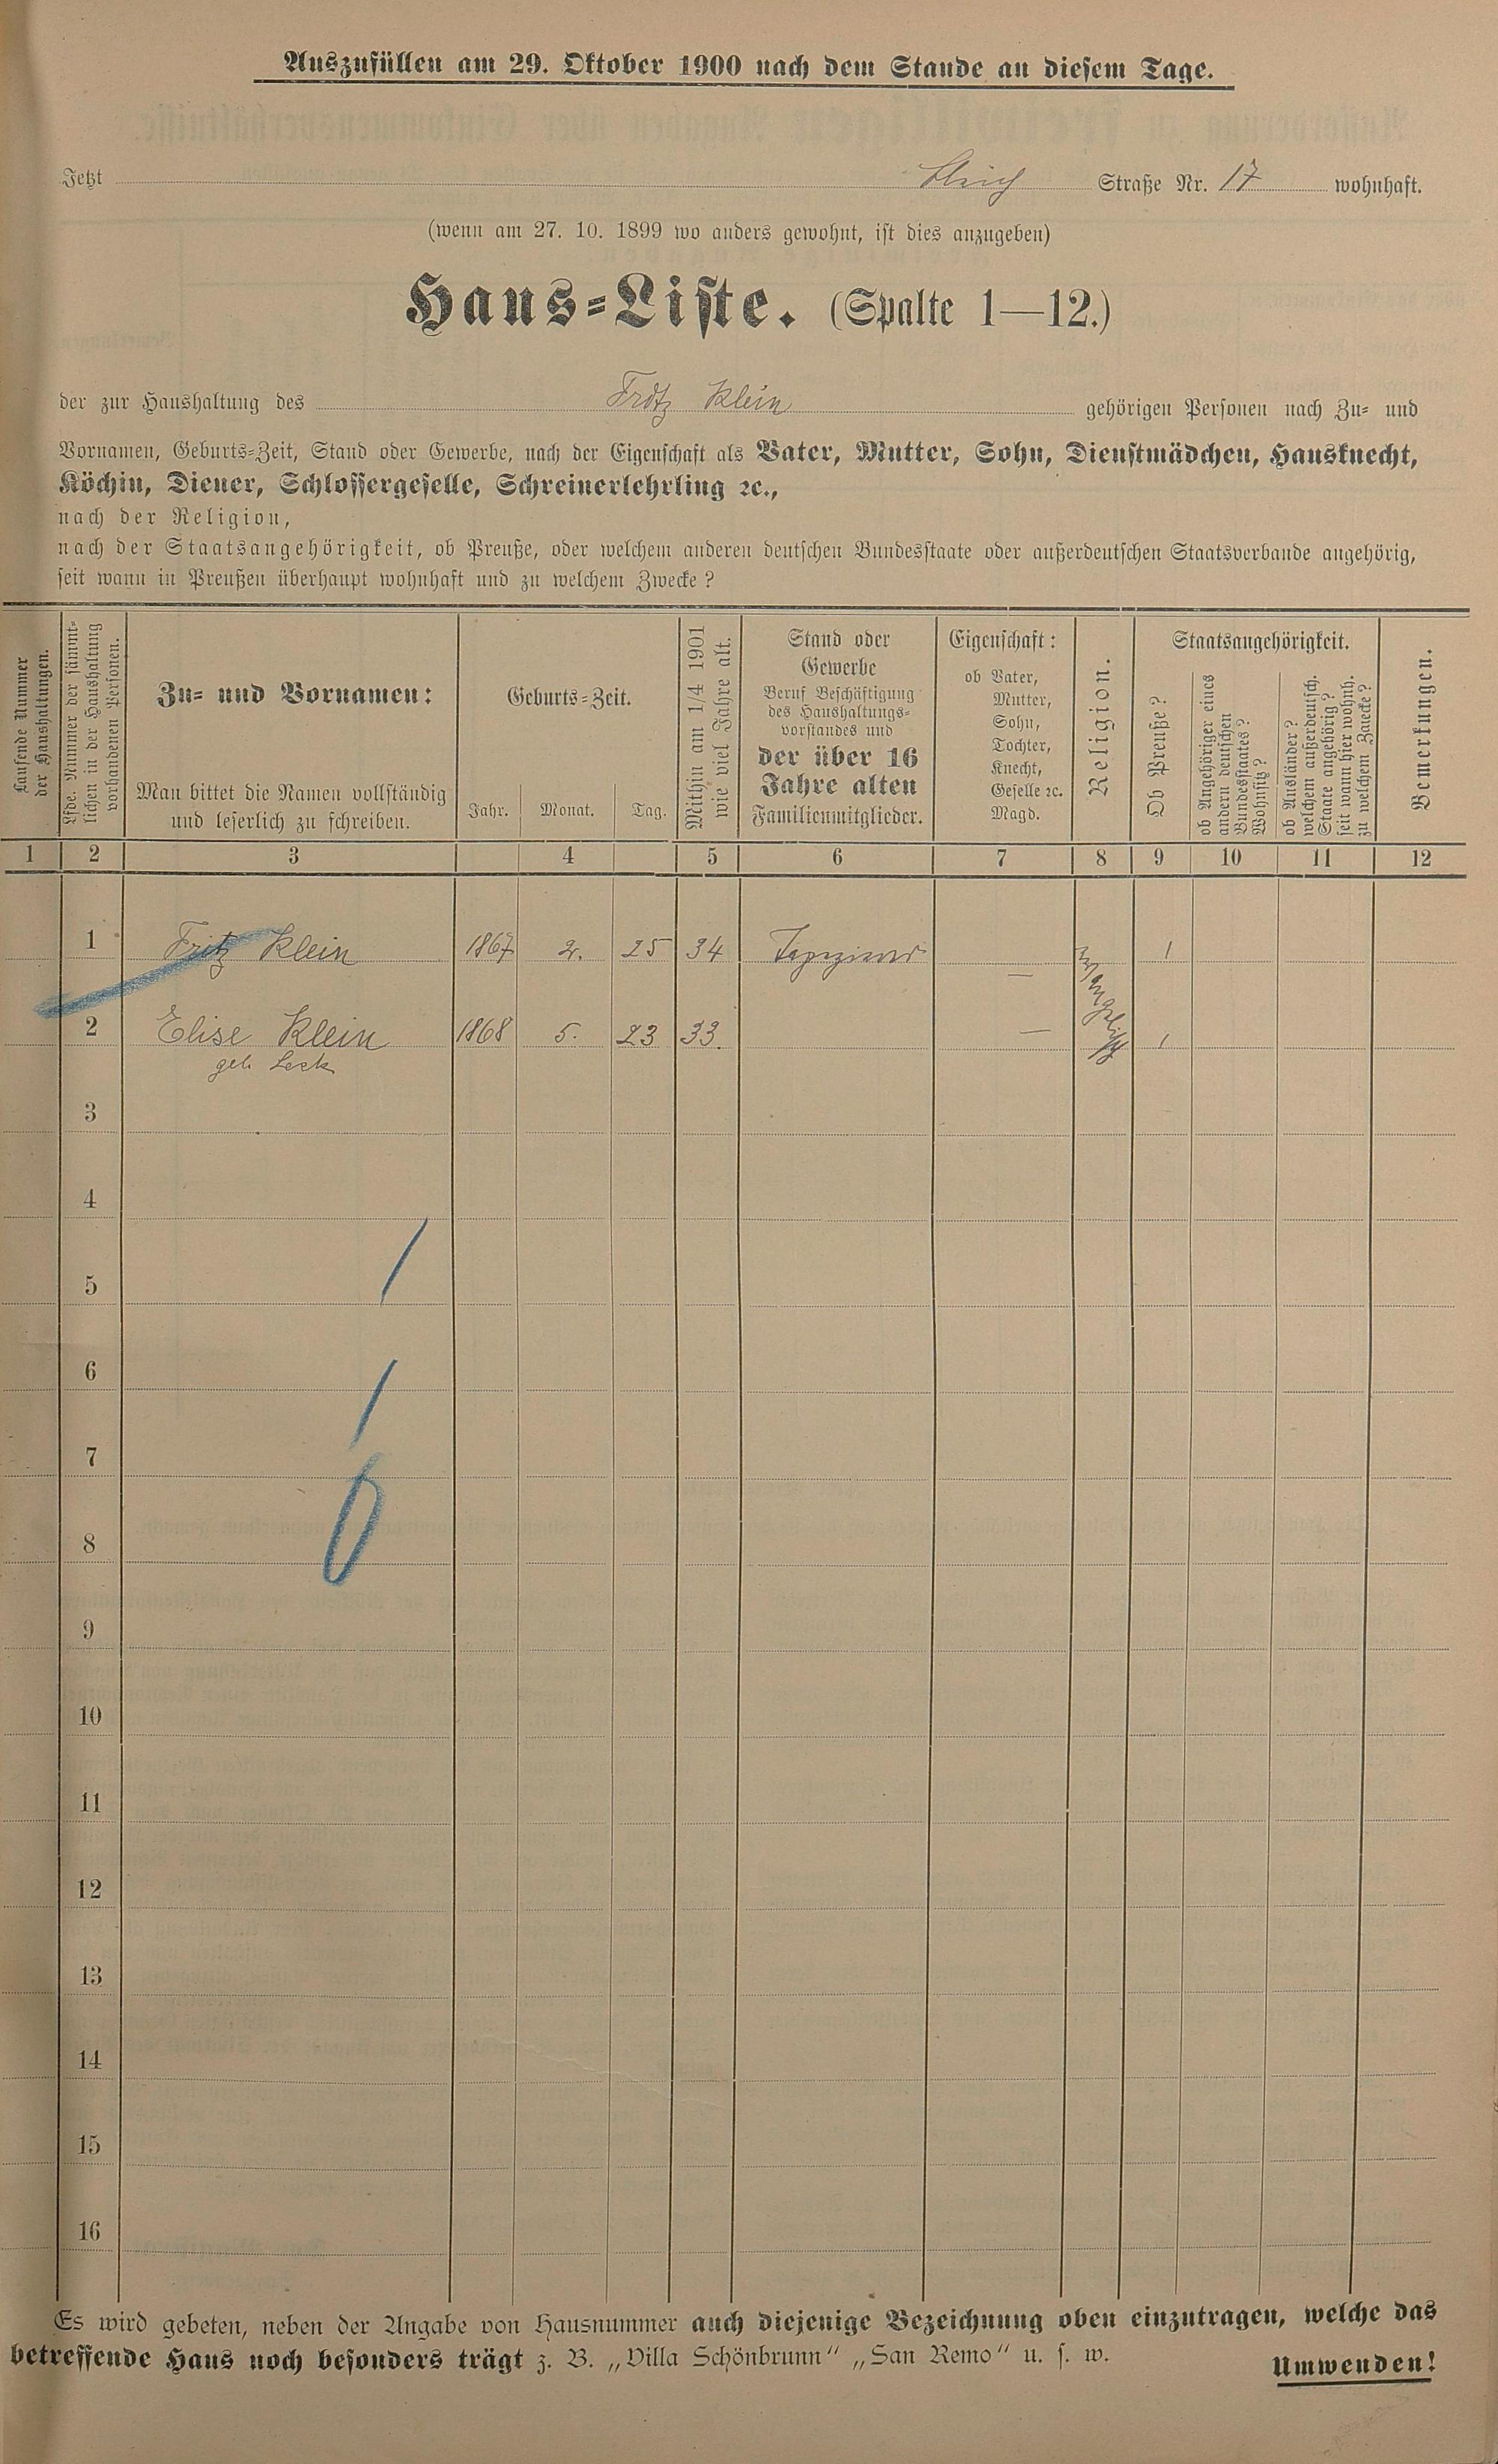 Auszufüllen am 29. Oktober 1900 nach dem Stande an diesem Tage.
Jetzt Straße Nr. 17 wohnhaft.
(wenn am 27. 10. 1899 wo anders gewohnt, ist dies anzugeben)
Haus-Liste. (Spalte 1—12.)
der zur Haushaltung des Fritz Klein gehörigen Personen nach Zu- und
Vornamen, Geburts-Zeit, Stand oder Gewerbe, nach der Eigenschaft als Vater, Mutter, Sohn, Dienstmädchen, Hausknecht,
Köchin, Diener, Schlossergeselle, Schreinerlehrling ꝛc.,
nach der Religion,
nach der Staatsangehörigkeit, ob Preuße, oder welchem anderen deutschen Bundesstaate oder außerdeutschen Staatsverbande angehörig,
seit wann in Preußen überhaupt wohnhaft und zu welchem Zwecke?
Laufende Nummer
der Haushaltungen.
Lfde. Nummer der sämmt-
lichen in der Haushaltung
vorhandenen Personen.
Zu- und Vornamen:
Man bittet die Namen vollständig
und leserlich zu schreiben.
Geburts-Zeit.
Jahr. Monat. Tag.
Mithin am 1/4 1901
wie viel Jahre alt.
Stand oder
Gewerbe
Beruf Beschäftigung
des Haushaltungs-
vorstandes und
der über 16
Jahre alten
Familienmitglieder.
Eigenschaft:
ob Vater,
Mutter,
Sohn,
Tochter,
Knecht,
Geselle ꝛc.
Magd.
Religion.
Staatsangehörigkeit.
Ob Preuße?
ob Angehöriger eines
andern deutschen
Bundesstaates?
Wohnsitz?
ob Ausländer?
welchem außerdeutsch.
Staate angehörig?
seit wann hier wohnh.
zu welchem Zwecke?
Bemerkungen.
1 2 3 4 5 6 7 8 9 10 11 12
1 Fritz Klein 1867 2. 25 34 Tapezierer — Evangelisch 1
2 Elise Klein 1868 5. 23 33. — 1
geb.
3
4
5
6
7
8
9
10
11
12
13
14
15
16
Es wird gebeten, neben der Angabe von Hausnummer auch diejenige Bezeichnung oben einzutragen, welche das
betreffende Haus noch besonders trägt z. B. „Villa Schönbrunn“ „San Remo“ u. s. w.
Umwenden!